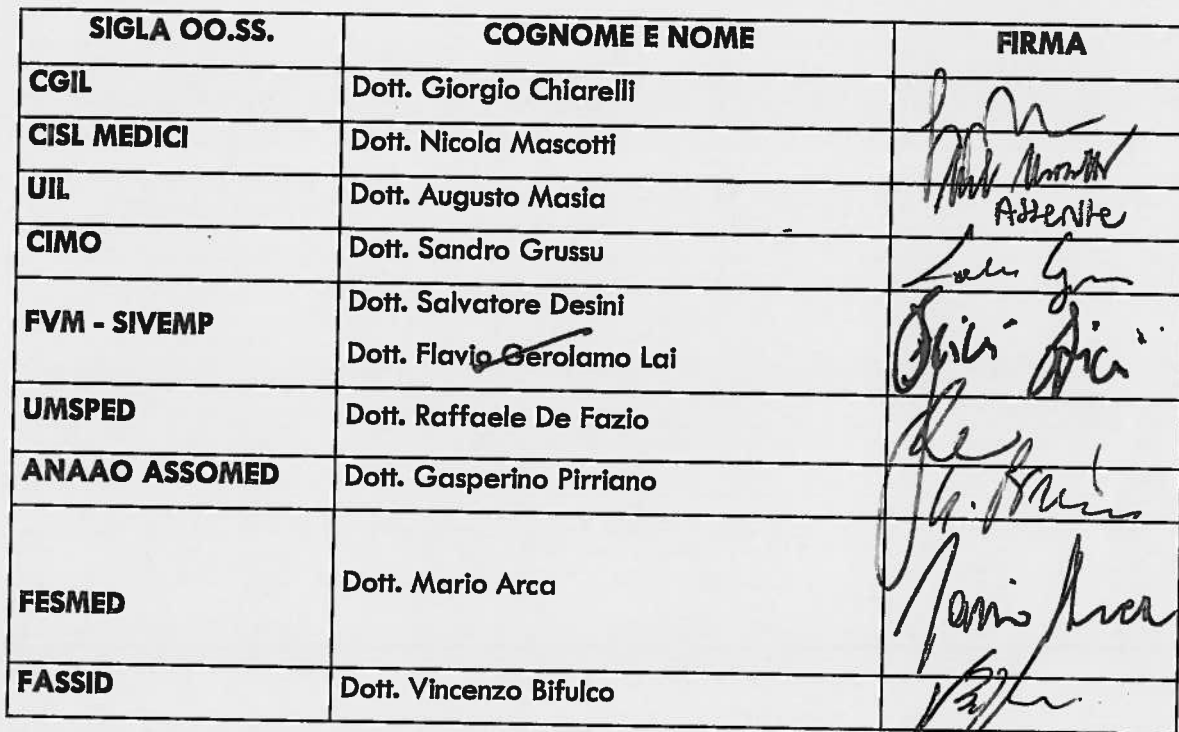 SIGLA OO.SS. COGNOME E NOME FIRMA
CGIL Dott. Giorgio Chiarelli
CISL MEDICI Dott. Nicola Mascotti
UIL Dott. Augusto Masia Assente
CIMO Dott. Sandro Grussu
FVM - SIVEMP Dott. Salvatore Desini
Dott. Flavio Gerolamo Lai
UMSPED Dott. Raffaele De Fazio
ANAAO ASSOMED Dott. Gasperino Pirriano
FESMED Dott. Mario Arca Mario Arca
FASSID Dott. Vincenzo Bifulco